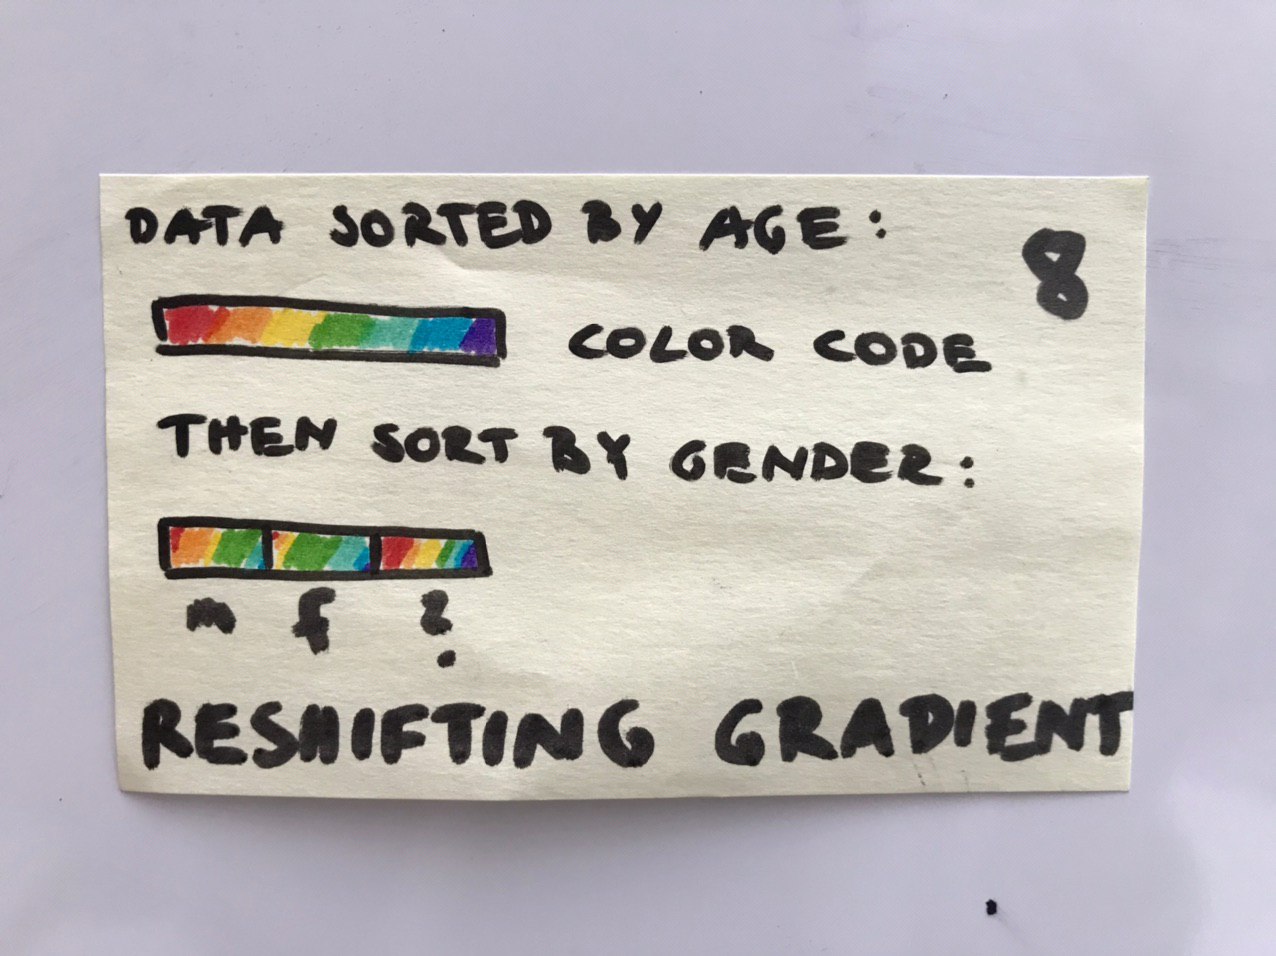 DATA SORTED BY AGE:
8
COLOR CODE
THEN SORT BY GENDER:
m f ?
RESHIFTING GRADIENT